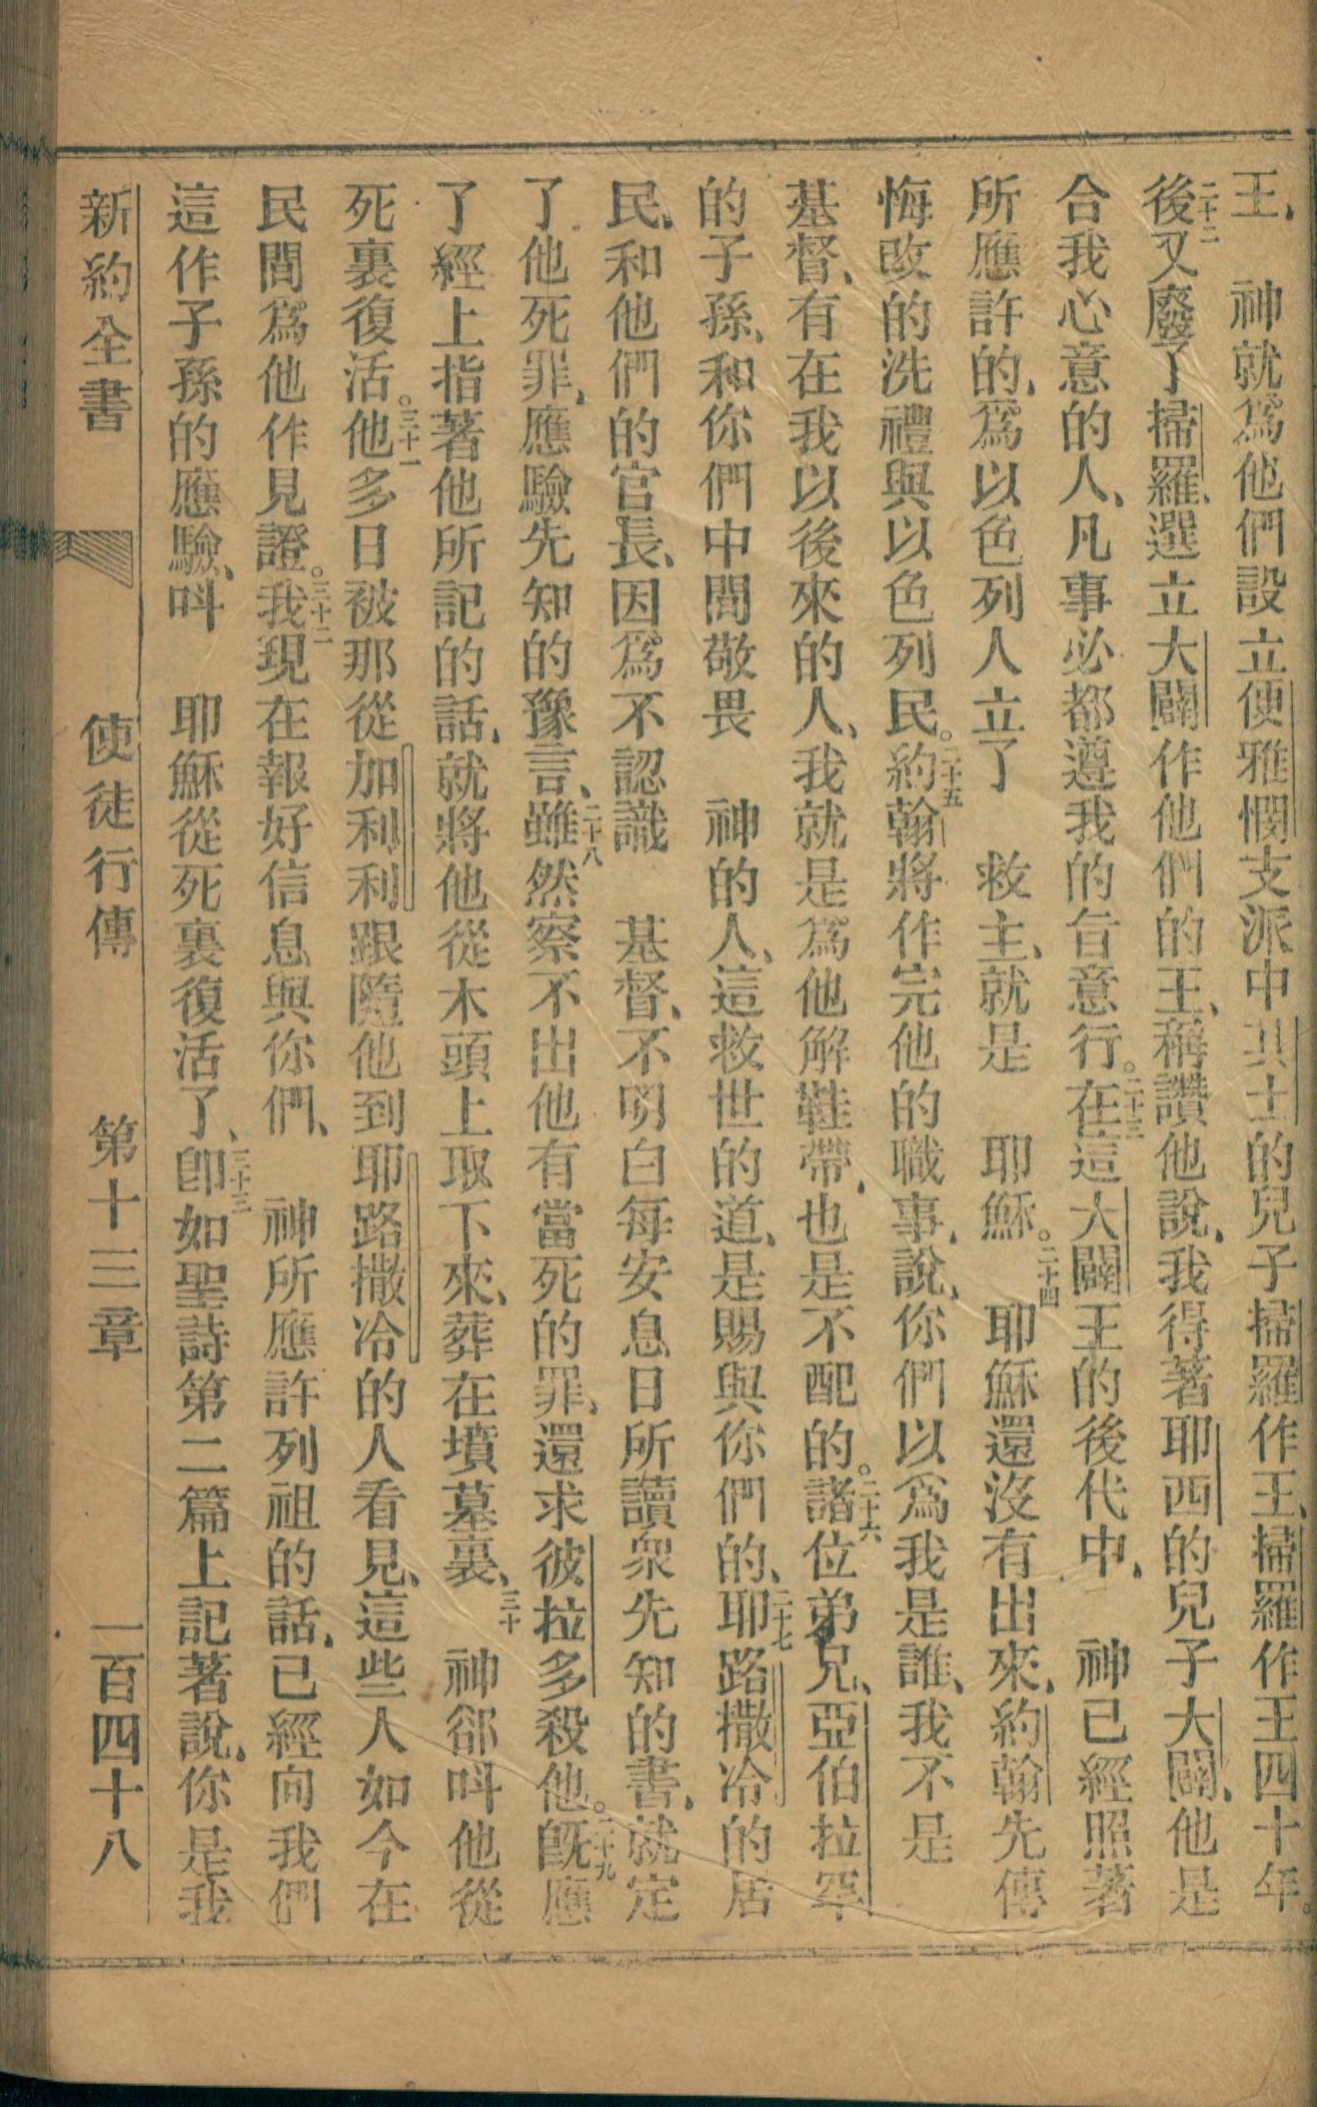 王、　神就爲他們設立便雅憫支派中其士的兒子掃羅作王、掃羅作王四十年。
二十二後又廢了掃羅、選立大闢作他們的王、稱讚他說、我得著耶西的兒子大闢、他是
合我心意的人、凡事必都遵我的旨意行。二十三在這大闢王的後代中、　神已經照著
所應許的、爲以色列人立了　救主、就是　耶穌。二十四　耶穌還沒有出來、約翰先傳
悔改的洗禮與以色列民。二十五約翰將作完他的職事、說、你們以爲我是誰、我不是
基督、有在我以後來的人、我就是爲他解鞋帶、也是不配的。二十六諸位弟兄、亞伯拉罕
的子孫、和你們中間敬畏　神的人、這救世的道、是賜與你們的、二十七耶路撒冷的居
民、和他們的官長、因爲不認識　基督、不明白每安息日所讀衆先知的書、就定
了他死罪、應驗先知的豫言、二十八雖然察不出他有當死的罪、還求彼拉多殺他。二十九旣應
了經上指著他所記的話、就將他從木頭上取下來、葬在墳墓裏、三十　神卻呌他從
死裏復活。三十一他多日被那從加利利跟隨他到耶路撒冷的人看見、這些人如今在
民間爲他作見證。三十二我現在報好信息與你們、　神所應許列祖的話、已經向我們
這作子孫的應驗、呌　耶穌從死裏復活了、三十三卽如聖詩第二篇上記著說、你是我
新約全書　使徒行傳　第十三章　一百四十八